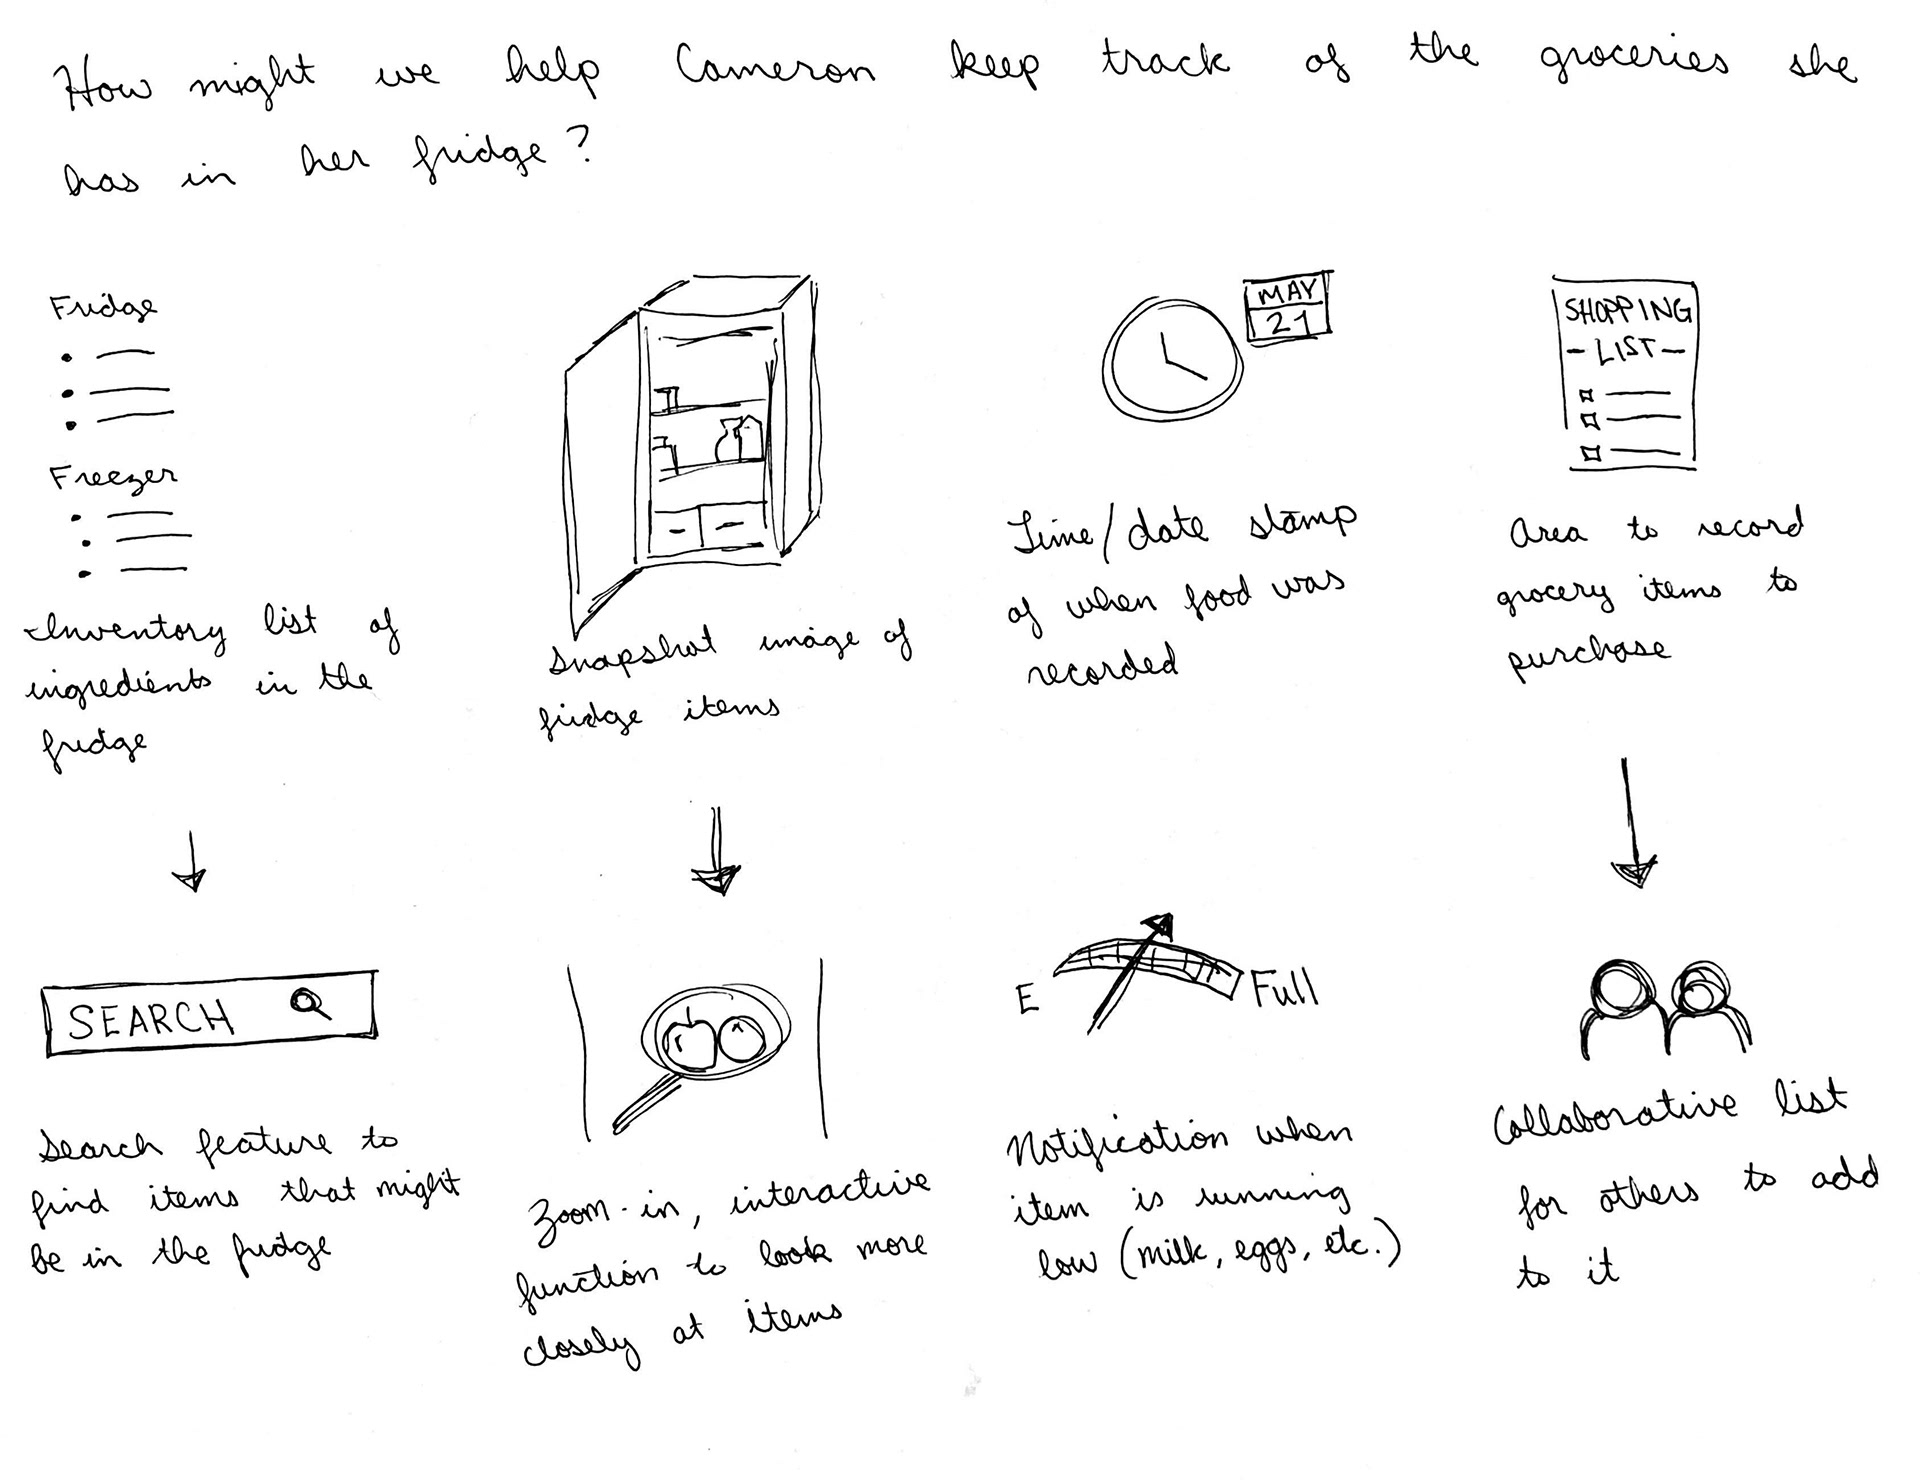 How might we help Cameron keep track of the groceries she
has in her fridge?
Fridge
Freezer
Inventory list of
ingredients in the
fridge
Snapshot image of
fridge items
MAY
21
Time/date stamp
of when food was
recorded
SHOPPING
- LIST -
Area to record
grocery items to
purchase
SEARCH
Search feature to
find items that might
be in the fridge
Zoom-in, interactive
function to look more
closely at items
E Full
Notification when
item is running
low (milk, eggs, etc.)
Collaborative list
for others to add
to it